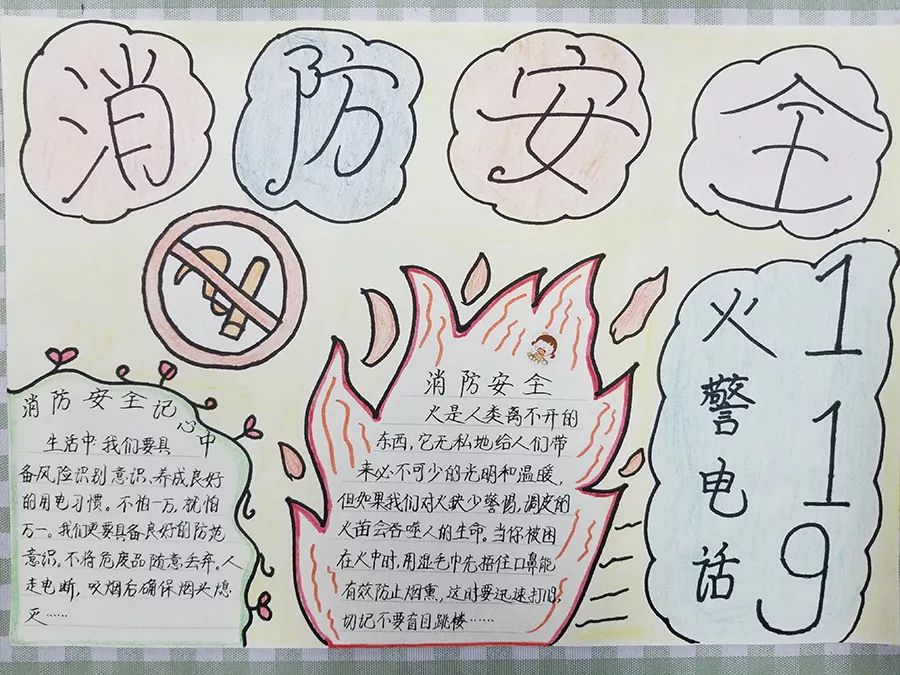 消防安全
消防安全记
心中
生活中我们要具
备风险识别意识、养成良好
的用电习惯。不怕一万,就怕
万一。我们更要具备良好的防范
意识。不将危废品随意丢弃。人
走电断,吸烟后确保烟头熄
灭……
消防安全
火是人类离不开的
东西,它无私地给人们带
来必不可少的光明和温暖,
但如果我们对火缺少警惕,调皮的
火苗会吞噬人的生命。当你被困
在火中时,用湿毛巾先捂住口鼻能
有效防止烟熏,这时要迅速打119,
切记不要盲目跳楼……
火警电话
119